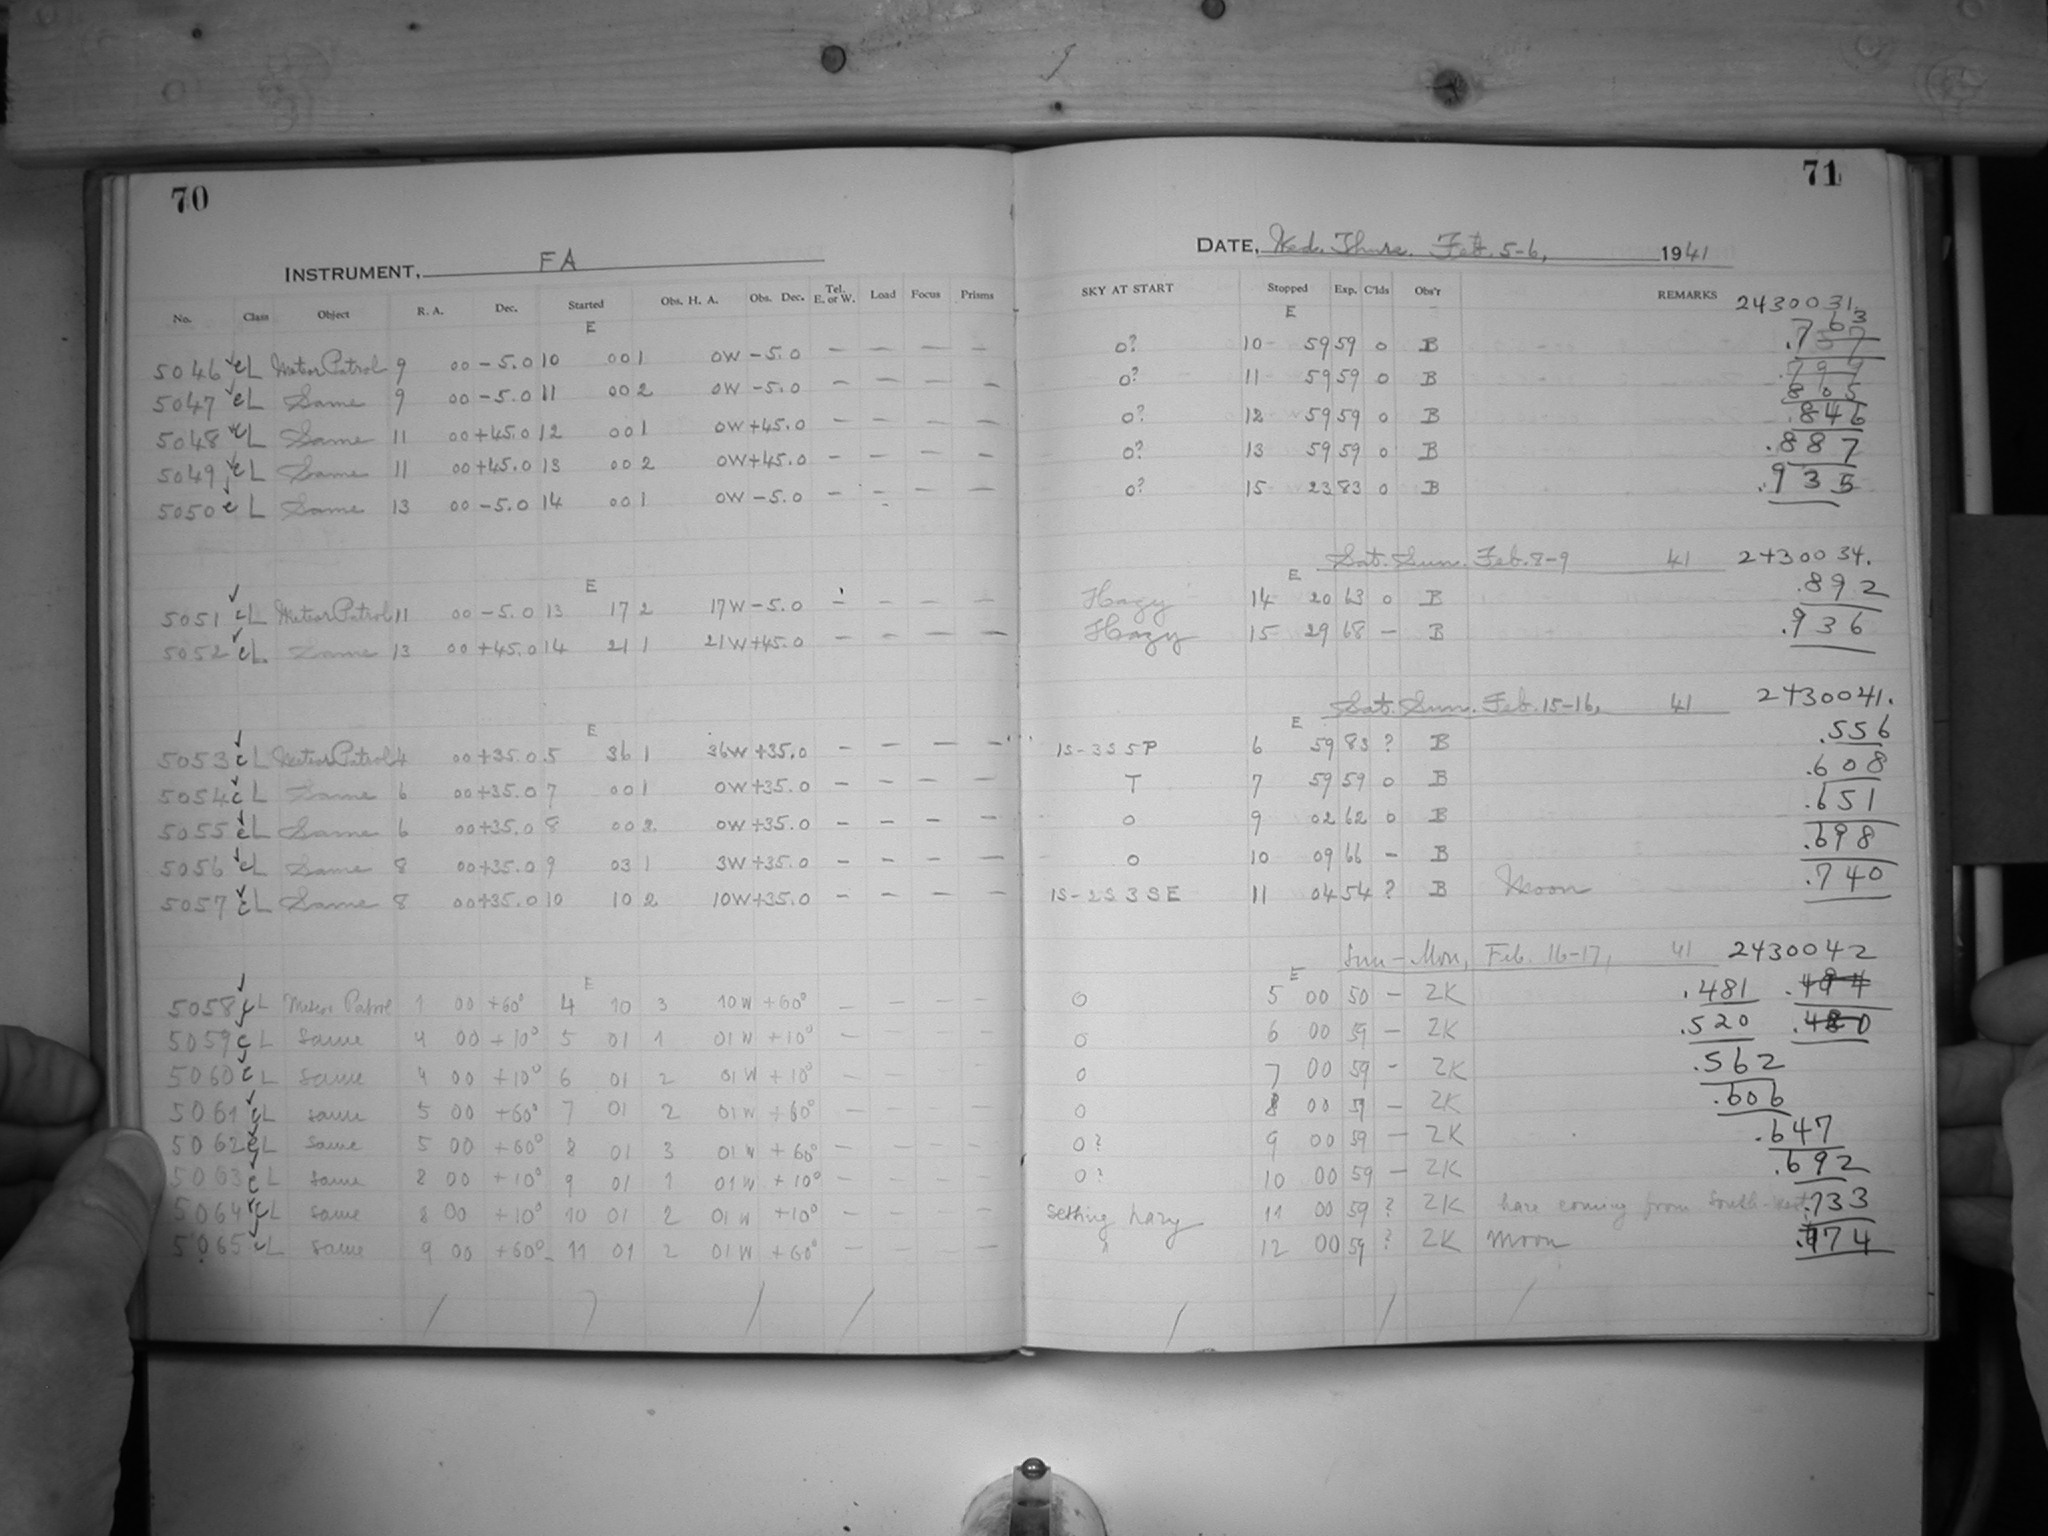 70
INSTRUMENT, FA
No. Class Object R. A. Dec. Started Obs. H. A. Obs. Dec. Tel. E. or W. Load Focus Prisms
E
5046 cL Meteor Patrol 9 00 -5.0 10 00 1 0W -5.0 — — — —
5047 cL Same 9 00 -5.0 11 00 2 0W -5.0 — — — —
5048 cL Same 11 00 +45.0 12 00 1 0W +45.0 — — — —
5049 cL Same 11 00 +45.0 13 00 2 0W +45.0 — — — —
5050 cL Same 13 00 -5.0 14 00 1 0W -5.0 — — — —
E
5051 cL Meteor Patrol 11 00 -5.0 13 17 2 17W -5.0 — — — —
5052 cL Same 13 00 +45.0 14 21 1 21W +45.0 — — — —
E
5053 cL Meteor Patrol 4 00 +35.0 5 36 1 36W +35.0 — — — —
5054 cL Same 6 00 +35.0 7 00 1 0W +35.0 — — — —
5055 cL Same 6 00 +35.0 8 00 2 0W +35.0 — — — —
5056 cL Same 8 00 +35.0 9 03 1 3W +35.0 — — — —
5057 cL Same 8 00 +35.0 10 10 2 10W +35.0 — — — —
E
5058 cL Meteor Patrol 1 00 +60° 4 10 3 10W +60° — — — —
5059 cL Same 4 00 +10° 5 01 1 01W +10° — — — —
5060 cL Same 4 00 +10° 6 01 2 01W +10° — — — —
5061 cL same 5 00 +60° 7 01 2 01W +60° — — — —
5062 cL same 5 00 +60° 8 01 3 01W +60° — — — —
5063 cL same 8 00 +10° 9 01 1 01W +10° — — — —
5064 cL same 8 00 +10° 10 01 2 01W +10° — — — —
5065 cL same 9 00 +60° 11 01 2 01W +60° — — — —
71
DATE, Wed. Thurs. Feb. 5-6, 1941
SKY AT START Stopped Exp. C'lds Obs'r REMARKS 2430031.
E
0? 10 59 59 0 B .757 63
0? 11 59 59 0 B .799 805
0? 12 59 59 0 B .846
0? 13 59 59 0 B .887
0? 15 23 83 0 B .935
Sat. Sun. Feb. 8-9 41 2430034.
E
Hazy 14 20 63 0 B .892
Hazy 15 29 68 — B .936
Sat. Sun. Feb. 15-16, 41 2430041.
E
1S-3S5P 6 59 83 ? B .556
T 7 59 59 0 B .608
0 9 02 62 0 B .651
0 10 09 66 — B .698
1S-2S3SE 11 04 54 ? B Moon .740
Sun-Mon, Feb. 16-17, 41 2430042
E
0 5 00 50 — ZK .481
0 6 00 59 — ZK .520
0 7 00 59 — ZK .562
0 8 00 59 — ZK .606
0? 9 00 59 — ZK .647
0? 10 00 59 — ZK .692
Setting hazy 11 00 59 ? ZK haze coming from South-west .733
12 00 59 ? ZK Moon .774